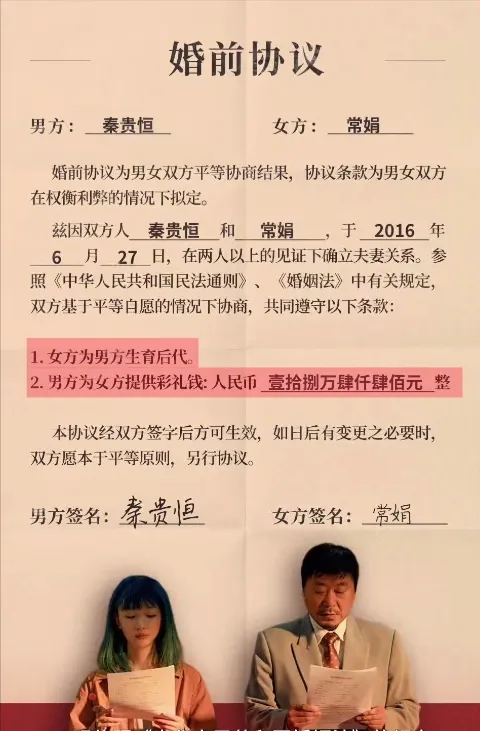 婚前协议
男方： 秦贵恒 女方： 常娟
婚前协议为男女双方平等协商结果，协议条款为男女双方
在权衡利弊的情况下拟定。
兹因双方人 秦贵恒 和 常娟 ，于 2016 年
6 月 27 日，在两人以上的见证下确立夫妻关系。参
照《中华人民共和国民法通则》、《婚姻法》中有关规定，
双方基于平等自愿的情况下协商，共同遵守以下条款：
1. 女方为男方生育后代。
2. 男方为女方提供彩礼钱: 人民币 壹拾捌万肆仟肆佰元 整
本协议经双方签字后方可生效，如日后有变更之必要时，
双方愿本于平等原则，另行协议。
男方签名： 秦贵恒 女方签名： 常娟